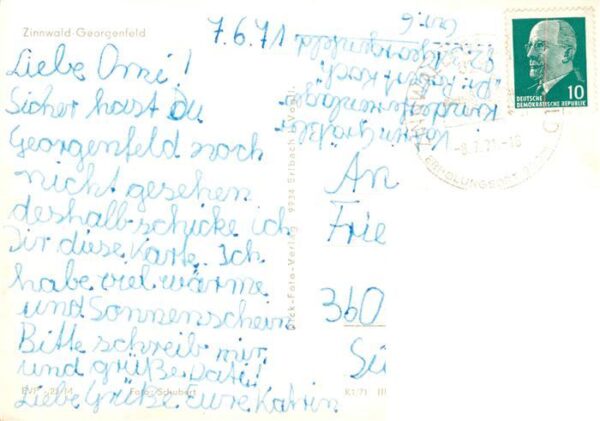 Zinnwald-Georgenfeld
7.6.71
Liebe Omi!
Sicher hast Du
Georgenfeld noch
nicht gesehen
deshalb schicke ich
Dir diese Karte. Ich
habe viel wärme
und Sonnenschein
Bitte schreib mir
und grüße Vati!
Liebe Grüße Eure Katrin
Foto: Schubert
K1/71
Bild-Foto-Verlag 9934 Erlbach i. Vogtl.
Kinderferienlager
"Dr. Robert Koch"
Georgenfeld
Gr. 6
An
Frie
360
Sü
10
DEUTSCHE
DEMOKRATISCHE REPUBLIK
-8.7.71-10
ERHOLUNGSORT